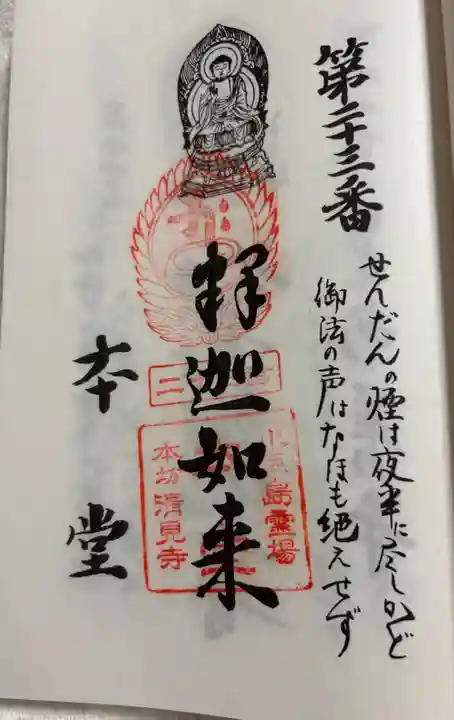 第二十三番
せんだんの煙は夜半に尽しかど
御法の声はなほも絶えせず
釋迦如来
本堂
小豆島霊場
本切清見寺